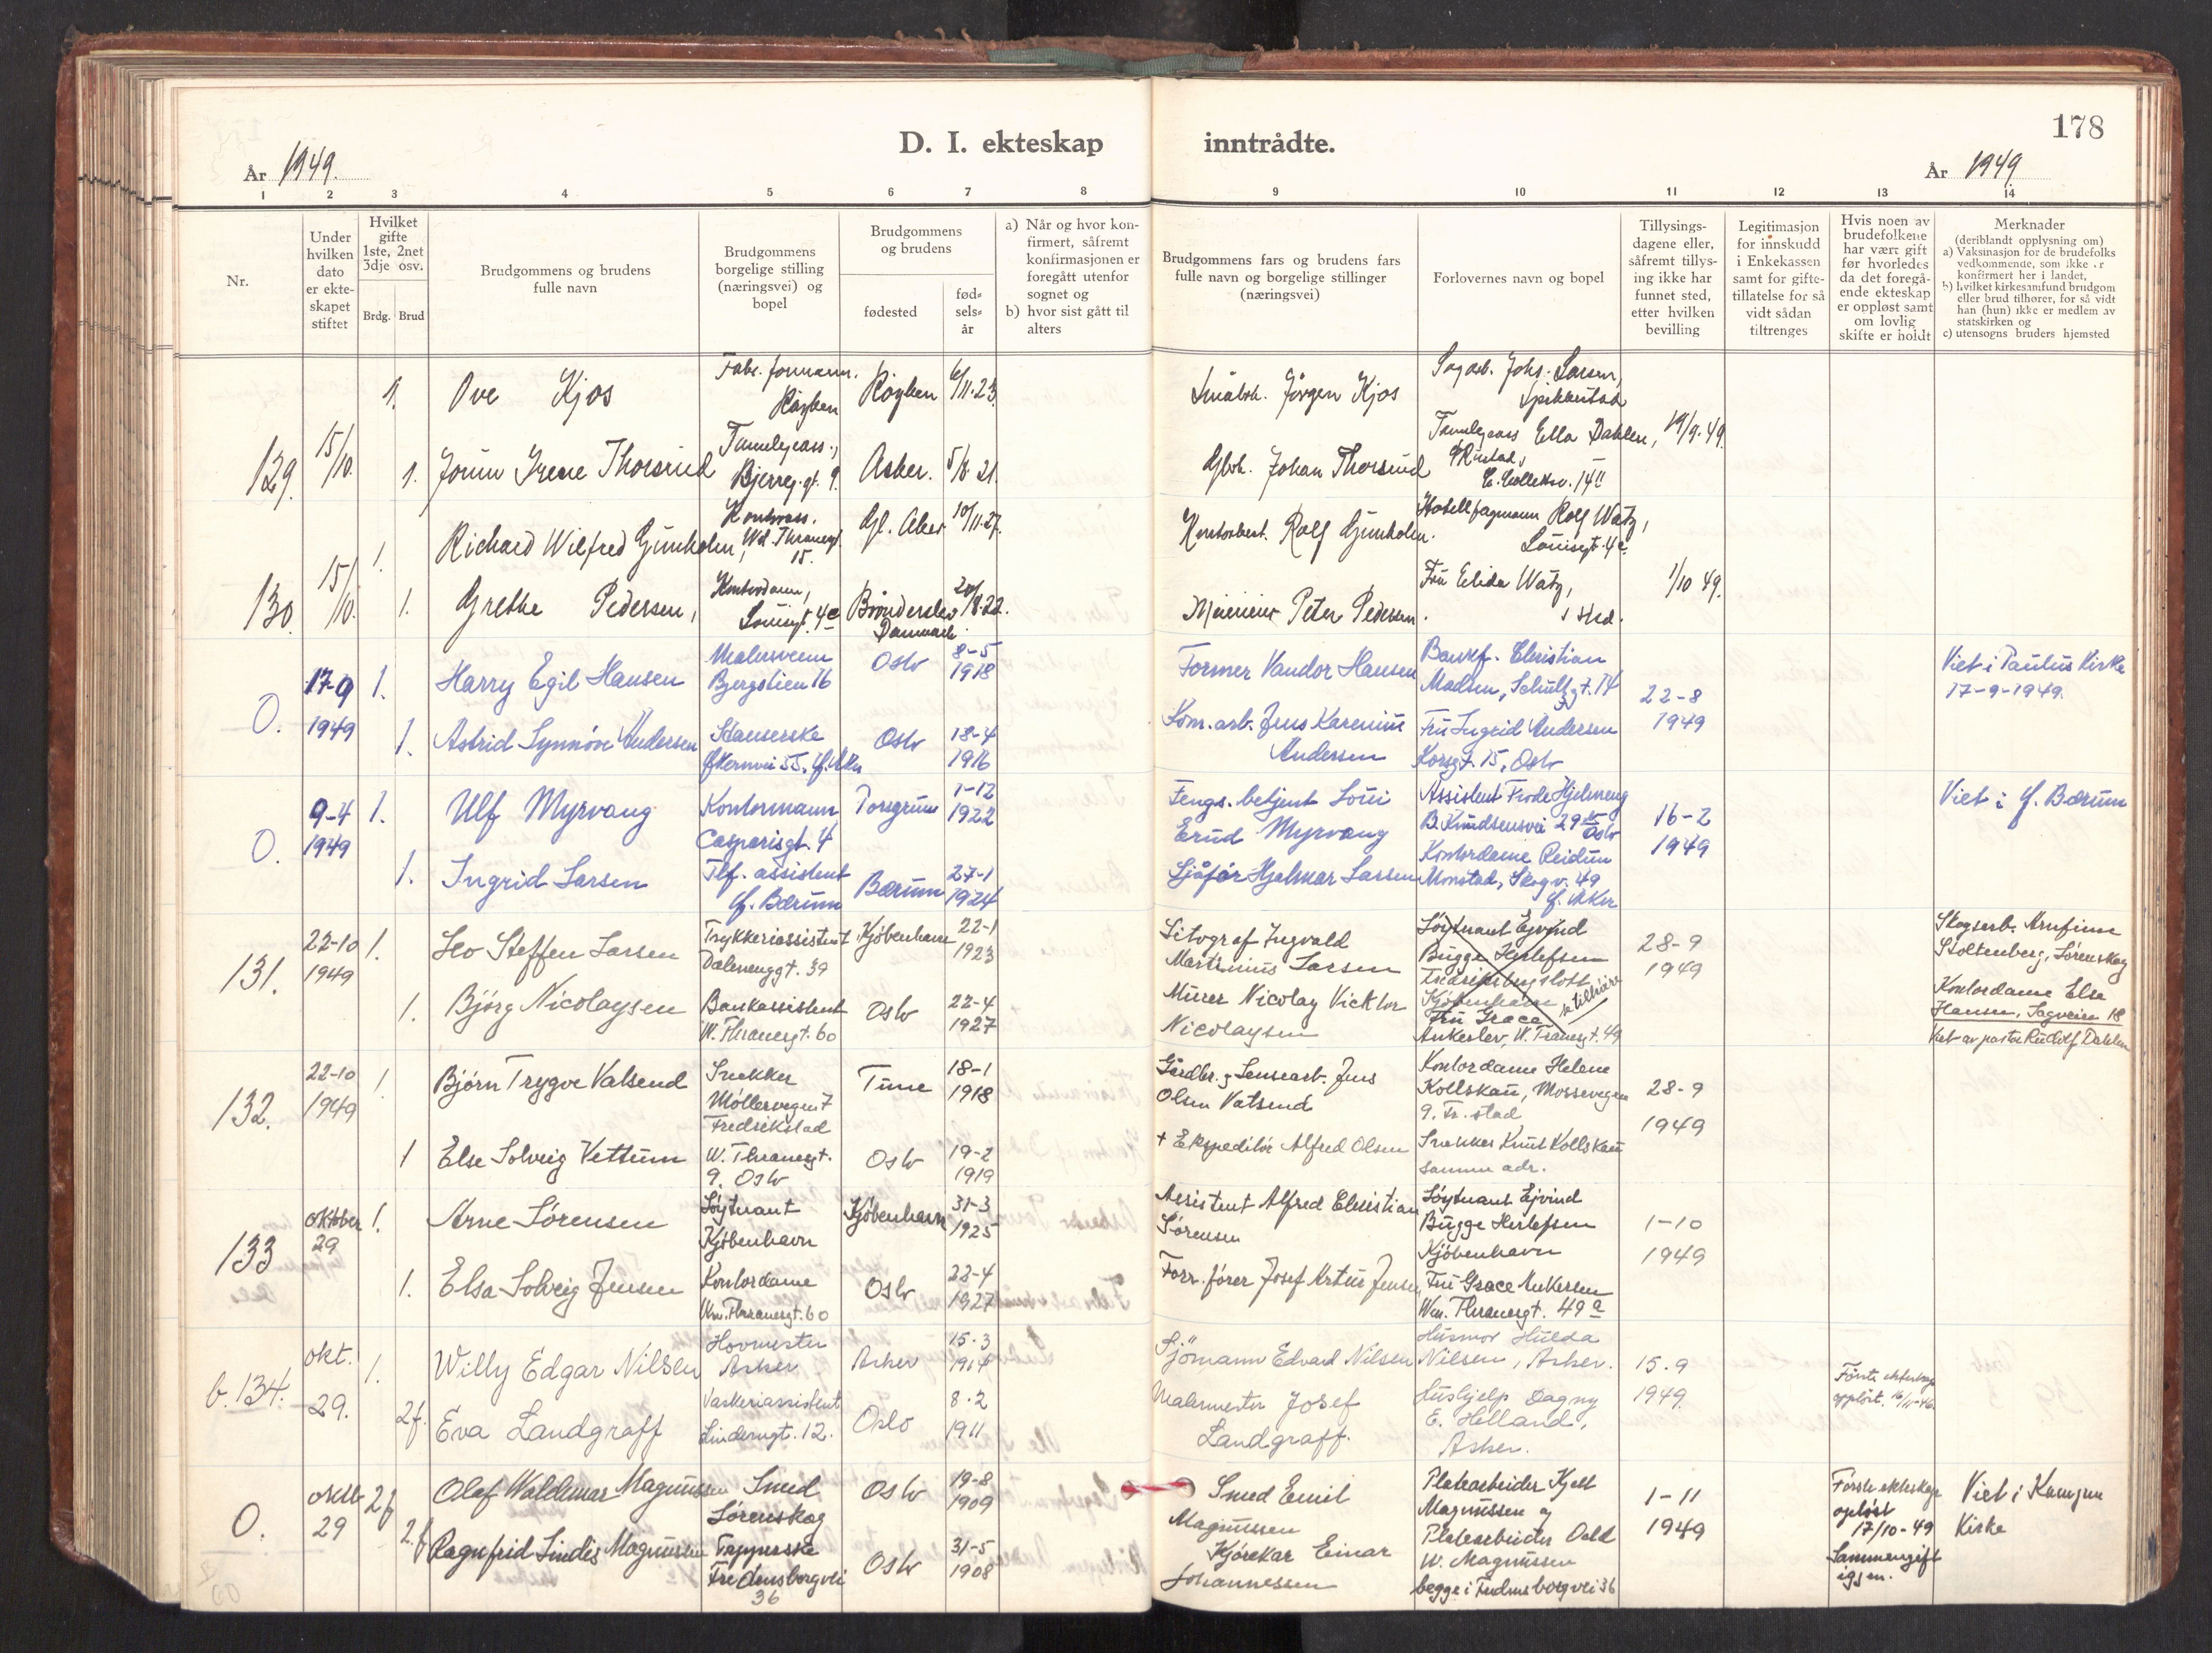 178
D. I. ekteskap inntrådte.
År 1949. År 1949
1 2 3 4 5 6 7 8 9 10 11 12 13 14
Nr.
Under hvilken dato er ekte-skapet stiftet
Hvilket gifte 1ste, 2net 3dje osv.
Brdg. Brud
Brudgommens og brudens fulle navn
Brudgommens borgelige stilling (næringsvei) og bopel
Brudgommens og brudens
fødested
fød-sels-år
a) Når og hvor kon-firmert, såfremt konfirmasjonen er foregått utenfor sognet og
b) hvor sist gått til alters
Brudgommens fars og brudens fars fulle navn og borgelige stillinger (næringsvei)
Forlovernes navn og bopel
Tillysings-dagene eller, såfremt tillys-ing ikke har funnet sted, etter hvilken bevilling
Legitimasjon for innskudd i Enkekassen samt for gifte-tillatelse for så vidt sådan tiltrenges
Hvis noen av brudefolkene har vært gift før hvorledes da det foregå-ende ekteskap er oppløst samt om lovlig skifte er holdt
Merknader
(deriblandt opplysning om)
a) Vaksinasjon for de brudefolks vedkommende, som ikke er konfirmert her i landet,
b) hvilket kirkesamfund brudgom eller brud tilhører, for så vidt han (hun) ikke er medlem av statskirken og
c) utensogns bruders hjemsted
129. 15/10.
1. Ove Kjos Fabr. formann. Røyken Røyken 6/11.23. Småbr. Jörgen Kjos Sagarb. Johs. Larsen, Spikkestad
1. Jorun Irene Thorsrud Tannlegeass., Bjerreg.gt. 9. Asker. 5/8 21. Gbr. Johan Thorsrud Tannlegeass Ella Dahlen, 19/9. 49.
130. 15/10.
1. Richard Wilfred Gunholm, Kontorass. W. Thranesgt. 15. Gl. Aker 10/11.27. Kontorbest. Rolf Gunholm. Hotellfagmann Rolf Watz, Louisgt. 4c.
1. Grethe Pedersen, Kontordame, Louisgt. 4c Brönderslev Danmark. 20/8.22. Meierieier Peter Pedersen. Fru Elida Watz, sted. 1/10 49.
O. 17-9 1949
1. Harry Egil Hansen Malersvenn Bergstien 16 Oslo 8-5 1918 Former Vandor Hansen Bankf. Christian Madsen, Schultzgt. 14 22-8 1949 Viet i Paulus Kirke 17-9-1949.
1. Astrid Synnöve Andersen Stanserske Økernvei 55, Ø. Aker Oslo 18-4 1916 Kom. arb. Jens Karenius Andersen Fru Ingrid Andersen Korsgt. 15, Oslo
O. 9-4 1949
1. Ulf Myrvang Kontormann Casparisgt. 4 Porsgrunn 1-12 1922 Fengs. betjent Loui Erud Myrvang Assistent Frode Hjelmeng B. Knudsensvei 29 Oslo 16-2 1949 Viet i Ø. Bærum
1. Ingrid Larsen Tlf. assistent Ø. Bærum Bærum 27-1 1924 Sjåför Hjalmar Larsen Kontordame Reidun Monstad, Skogv. 49 Ø. Aker
131. 22-10 1949
1. Leo Steffen Larsen Trykkeriassistent Dælenenggt. 39 Kjöbenhavn 22-1 1923 Litograf Ingvald Martinius Larsen Löytnant Ejvind Bugge Herlefsen Fredriksbergslott Kjöbenhavn 28-9 1949 Skogsarb. Arnfinn Stoltenberg, Lörenskog
1. Björg Nicolaysen Bankassistent W. Thranesgt. 60 Oslo 22-4 1927 Murer Nicolay Vicktor Nicolaysen Fru Grace Ankersen, W. Thranesgt. 49 Kontordame Else Hansen, Sagveien 18
Viet av pastor Rudolf Dahlen
132. 22-10 1949
1. Bjørn Trygve Vatsend Snekker Møllervegen 7 Fredrikstad Tune 18-1 1918 Gårdbr. og Lensearb. Jens Olsen Vatsend Kontordame Helene Kollskau, Mossevegen 9. Fr. stad 28-9 1949
1 Else Solveig Vettum W. Thranesgt. 9. Oslo Oslo 19-2 1919 + Ekspeditør Alfred Olsen Snekker Knut Kollskau samme adr.
133 oktober 29
1. Arne Sörensen Löytnant Kjöbenhavn Kjöbenhavn 31-3 1925 Assistent Alfred Christian Sörensen Löytnant Ejvind Bugge Herlefsen Kjöbenhavn 1-10 1949
1. Elsa Solveig Jensen Kontordame Wm. Thranesgt. 60 Oslo 22-4 1927 Forr. förer Josef Artur Jensen Fru Grace Ankersen Wm. Thranesgt. 49a
b. 134. okt. 29.
1. Willy Edgar Nilsen Hovmester Asker Asker 15.3 1914 Sjömann Edvard Nilsen Husmor Hulda Nilsen, Asker. 15.9 1949. Förste ekteskap opplöst. 16/11-46.
2f. Eva Landgraff Vaskeriassistent Linderngt. 12. Oslo 8.2 1911 Malermester Josef Landgraff. Hushjelp Dagny E. Helland, Asker.
O. oktb 29
2f Olaf Waldemar Magnussen Smed Lörenskog Oslo 19-8 1909 Smed Emil Magnussen Platearbeider Kjell Magnussen og 1-11 1949 Förste ekteskap oplöst 17/10-49 Sammengift igjen. Viet i Kampen Kirke
2.f Ragnfrid Lindis Magnussen Tapperske Fredensborgvei 36 Oslo 31-5 1908 Kjörekar Einar Johannessen Platearbeider Odd W. Magnussen begge i Fredensborgvei 36